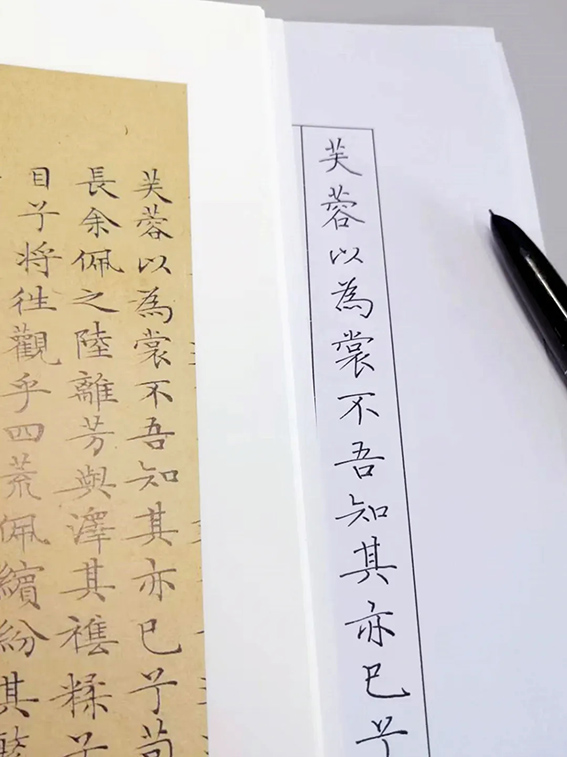 芙蓉以為裳不吾知其亦已兮
芙蓉以為裳不吾知其亦已兮苟
長余佩之陸離芳與澤其襍糅兮
目兮將往觀乎四荒佩繽紛其繁